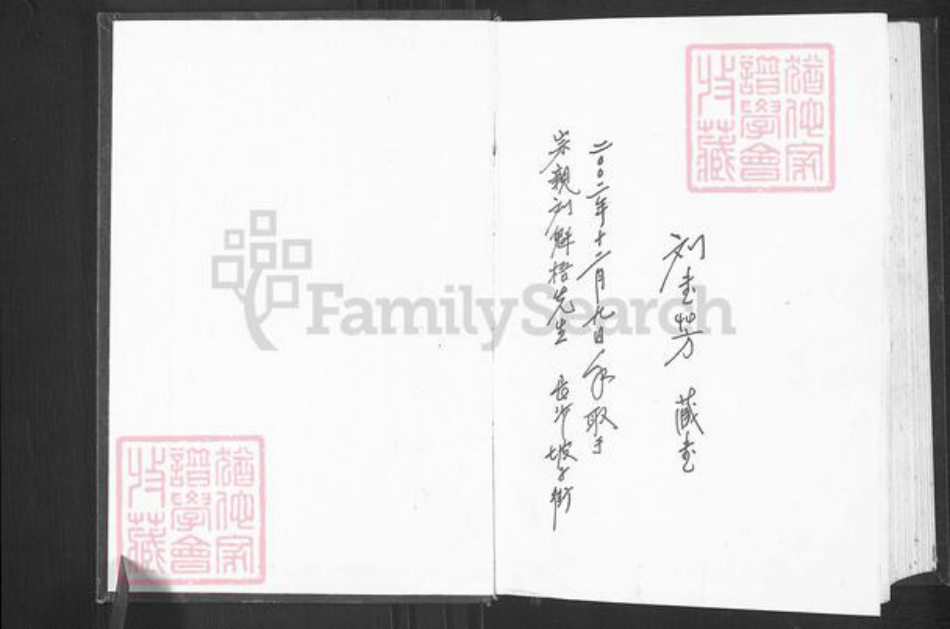 猶他家
譜學會
收藏
刘圭芳 藏圭
二〇〇二年十二月九日 承取于
宗親刘魁梧先生 長沙坡子街
FamilySearch
猶他家
譜學會
收藏